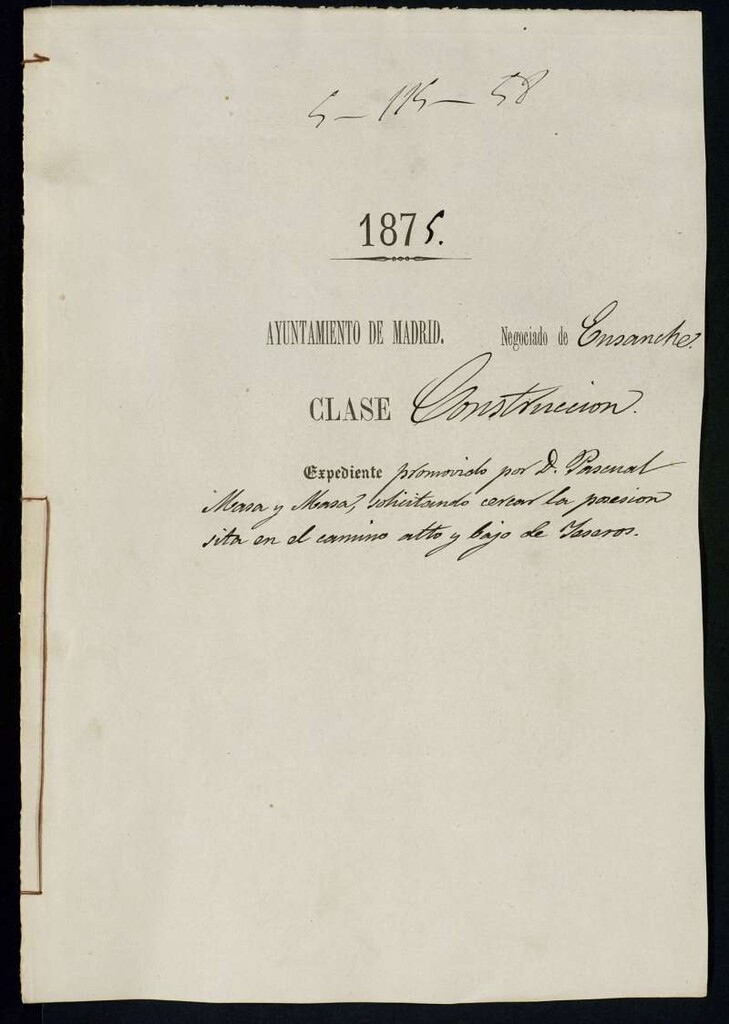 5 - 115 - 58
1875.
AYUNTAMIENTO DE MADRID. Negociado de Ensanche.
CLASE Construccion.
Expediente promovido por D. Pascual
Masa y Masa, solicitando cercar la posesion
sita en el camino alto y bajo de